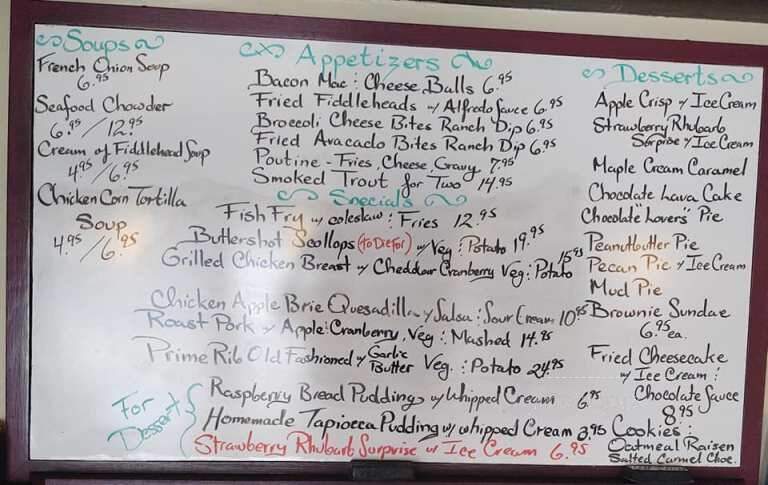 Soups
French Onion Soup
6.95
Seafood Chowder
6.95/12.95
Cream of Fiddlehead Soup
4.95/6.95
Chicken Corn Tortilla
Soup
4.95/6.95
Appetizers
Bacon Mac & Cheese Balls 6.95
Fried Fiddleheads w/ Alfredo Sauce 6.95
Broccoli Cheese Bites Ranch Dip 6.95
Fried Avacado Bites Ranch Dip 6.95
Poutine - Fries, Cheese, Gravy 7.95
Smoked Trout for Two 14.95
Specials
Fish Fry w/ coleslaw & Fries 12.95
Buttershot Scollops (To Die For) w/ Veg & Potato 19.95
Grilled Chicken Breast w/ Cheddar Cranberry Veg & Potato 15.95
Chicken Apple Brie Quesadilla w/ Salsa & Sour Cream 10.95
Roast Pork w/ Apple & Cranberry, Veg & Mashed 14.95
Prime Rib Old Fashioned w/ Garlic Butter Veg. & Potato 24.95
For
Dessert
Raspberry Bread Puddings w/ Whipped Cream 6.95
Homemade Tapiocca Pudding w/ whipped Cream 3.95
Strawberry Rhubarb Surprise w/ Ice Cream 6.95
Desserts
Apple Crisp w/ Ice Cream
Strawberry Rhubarb
Surprise w/ Ice Cream
Maple Cream Caramel
Chocolate Lava Cake
Chocolate "Lovers" Pie
Peanutbutter Pie
Pecan Pie w/ Ice Cream
Mud Pie
Brownie Sundae
6.95 ea.
Fried Cheesecake
w/ Ice Cream &
Chocolate Sauce
8.95
Cookies:
Oatmeal Raisen
Salted Carmel Choc.